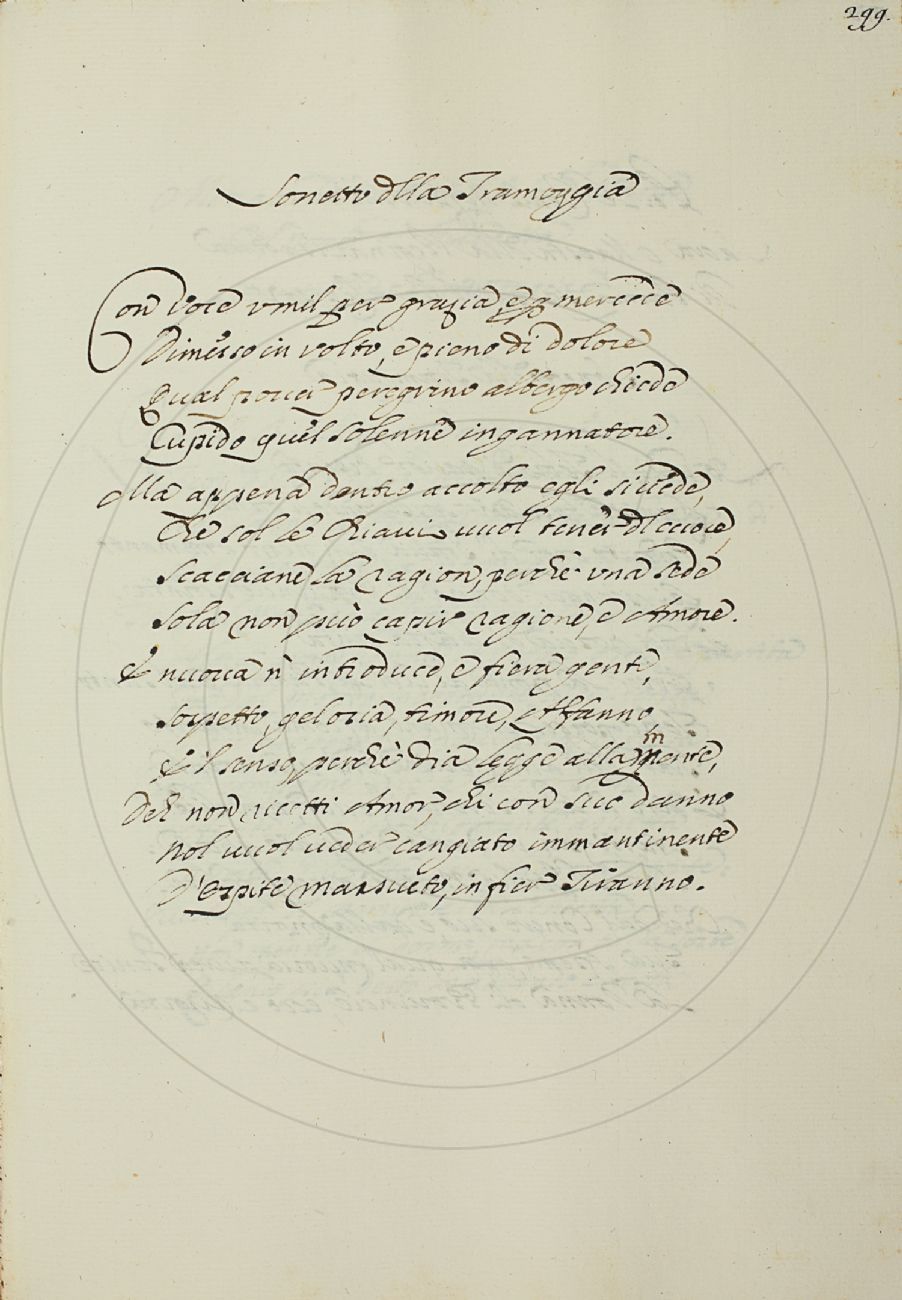 299.
Sonetto dlla Tramoggia
Con voce vmil per grazia, e p mercede
Dimesso in volto, e pieno di dolore
Qual pover peregrino albergo chiede
Cupido quel solenne ingannatore.
Ma appena dentro accolto egli si vede,
Che sol le Chiavi vuol tener dl cuore,
Scacciane la ragion, perchè vna sede
Sola non può capir ragione, e Amore.
E nuova vi introduce, e fiera gente,
Sospetto, gelosia, timore, Affanno
E 'l senso, perchè dia legge alla mente,
Deh non ricetti Amor, chi con suo danno
Nol vuol veder cangiato immantinente
D'Ospite mansueto, in fier Tiranno.